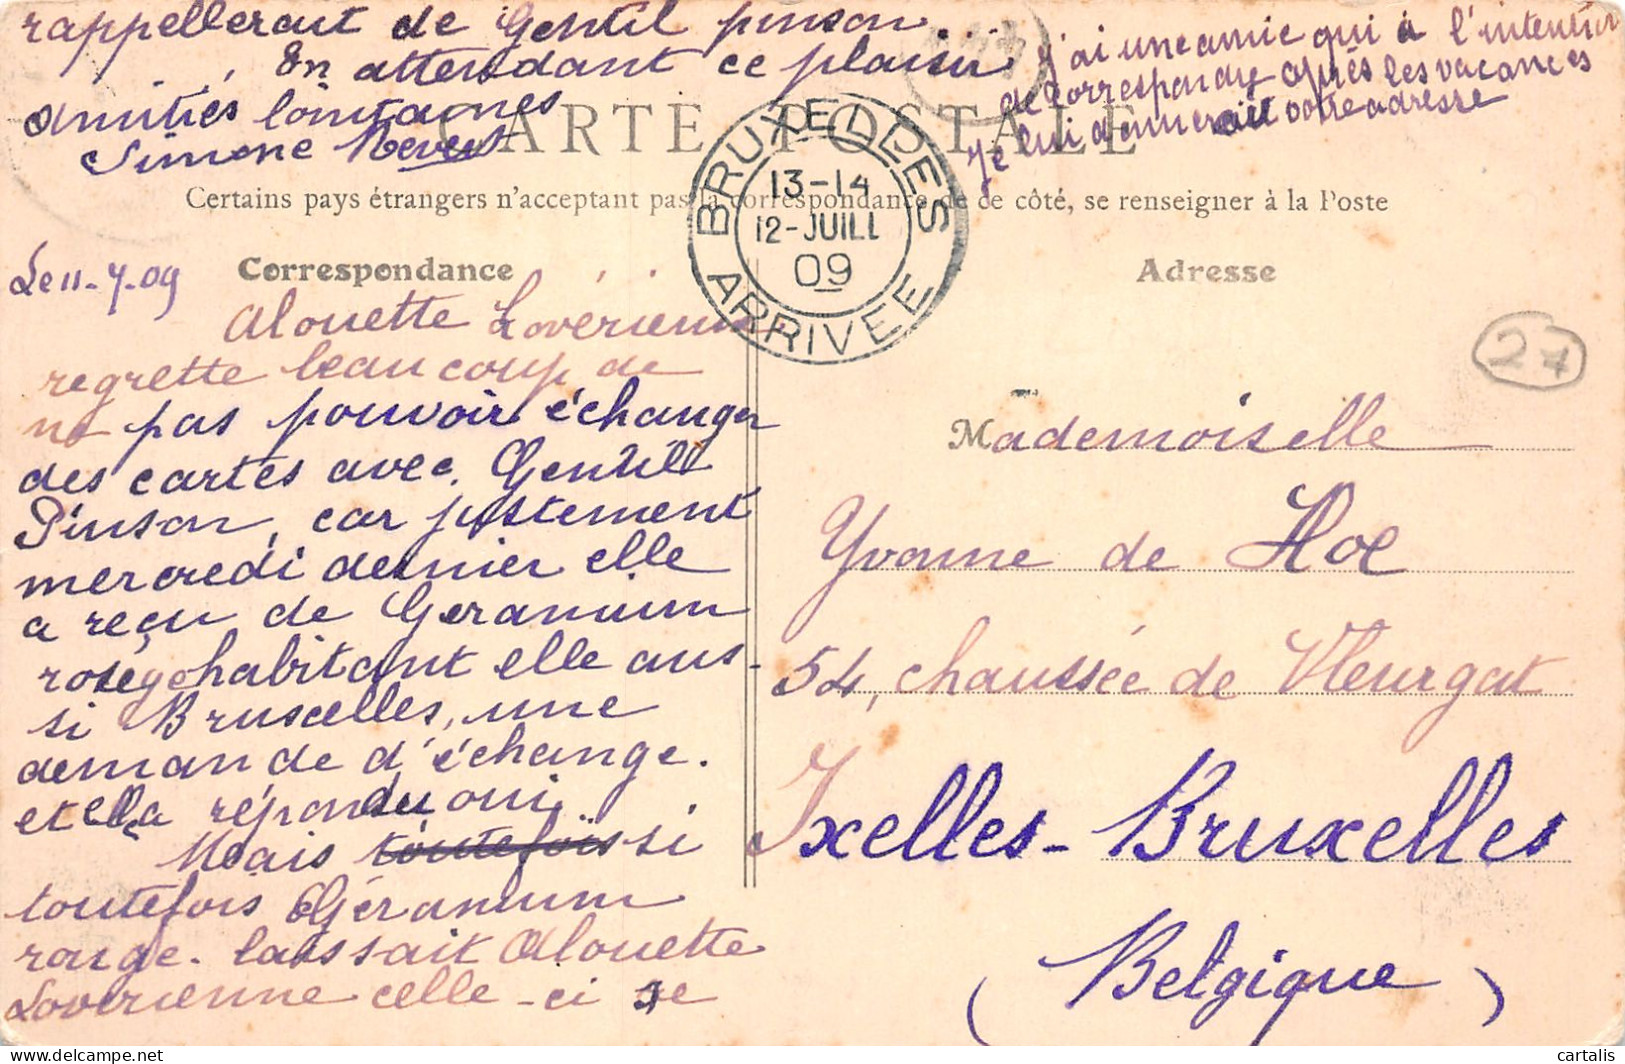 rappellerait de Gentil pinson.
En attendant ce plaisir
Amitiés lointaines
Simone
j'ai une amie qui à l'intention
de correspondre après les vacances
je lui donnerai votre adresse
CARTE POSTALE
Certains pays étrangers n'acceptant pas la correspondance de ce côté, se renseigner à la Poste
BRUXELLES
13-14
12-JUILL
09
ARRIVEE
Le 11-7-09
Correspondance
Adresse
27
Alouette Lovérienne
regrette beaucoup de
ne pas pouvoir échanger
des cartes avec Gentil
Pinson, car justement
mercredi dernier elle
a reçu de Geranium
habitant elle aus-
si Bruxelles, une
demande d'échange.
et ella répondu oui,
Mais toutefois si
toutefois Géranium
rouge laissait Alouette
Loverienne celle-ci se
Mademoiselle
Yvonne de Hoe
54, chaussée de Vleurgat
Ixelles-Bruxelles
(Belgique)
cartalis
delcampe.net